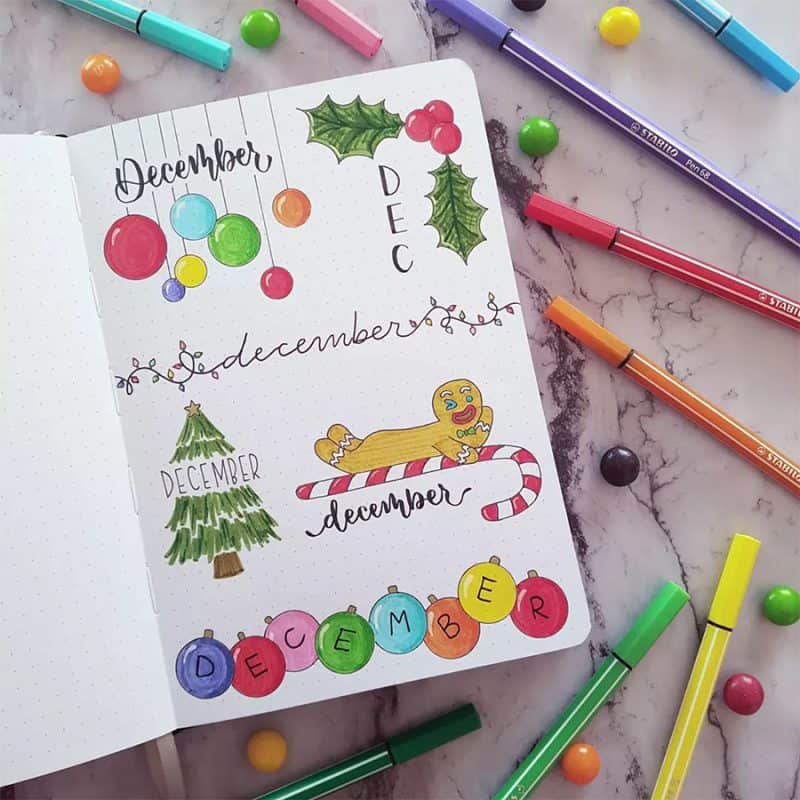 December
D
E
C
december
DECEMBER
december
DECEMBER
STABILO Pen 68
STABILO
STABILO